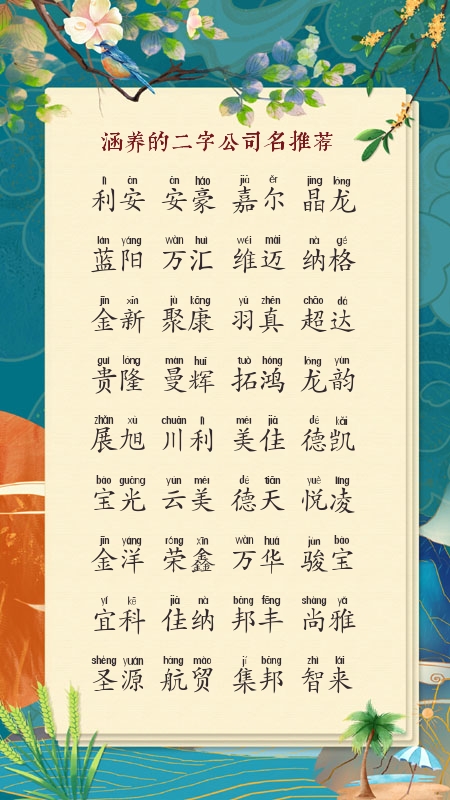 涵养的二字公司名推荐
lì ān ān háo jiā ěr jīng lóng
利安 安豪 嘉尔 晶龙
lán yáng wàn huì wéi mài nà gé
蓝阳 万汇 维迈 纳格
jīn xīn jù kāng yǔ zhēn chāo dá
金新 聚康 羽真 超达
guì lóng màn huī tuò hóng lóng yùn
贵隆 曼辉 拓鸿 龙韵
zhǎn xù chuān lì měi jiā dé kǎi
展旭 川利 美佳 德凯
bǎo guāng yún měi dé tiān yuè líng
宝光 云美 德天 悦凌
jīn yáng róng xīn wàn huá jùn bǎo
金洋 荣鑫 万华 骏宝
yí kē jiā nà bāng fēng shàng yǎ
宜科 佳纳 邦丰 尚雅
shèng yuán háng mào jí bāng zhì lái
圣源 航贸 集邦 智来